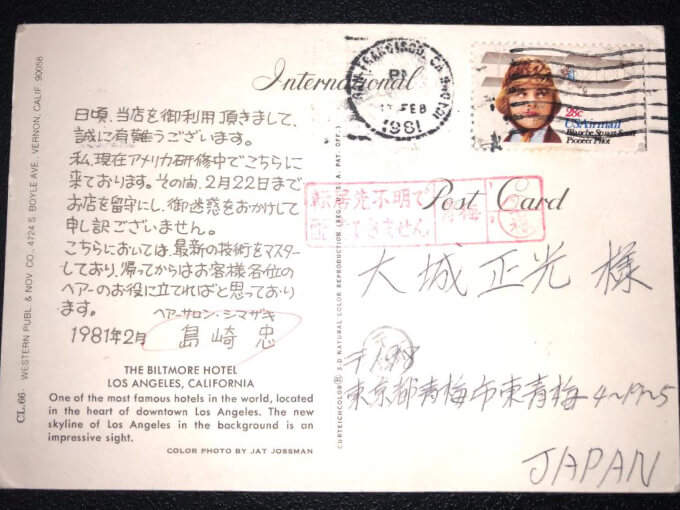 CL.66· WESTERN PUBL. & NOV. CO., 4724 S. BOYLE AVE., VERNON, CALIF. 90058
International
Post Card
日頃、当店を御利用頂きまして、
誠に有難うございます。
私、現在アメリカ研修中でこちらに
来ております。その向、2月22日まで
お店を留守にし、御迷惑をおかけして
申し訳ございません。
こちらにおいては、最新の技術をマスター
しており、帰ってからはお客様各位の
ヘアーのお役に立てればと思っており
ます。
ヘアーサロン・シマザキ
1981年2月 島崎 忠
THE BILTMORE HOTEL
LOS ANGELES, CALIFORNIA
One of the most famous hotels in the world, located
in the heart of downtown Los Angeles. The new
skyline of Los Angeles in the background is an
impressive sight.
COLOR PHOTO BY JAT JOSSMAN
CURTEICHCOLOR® 3-D NATURAL COLOR REPRODUCTION (REG. U.S.A. PAT. OFF.)
SAN FRANCISCO, CA
PM
FEB
1981
28c
USAirmail
Blanche Stuart Scott
Pioneer Pilot
転居先不明で
配達できません
青梅
大城正光 様
〒198
東京都青梅市東青梅4-19-5
JAPAN